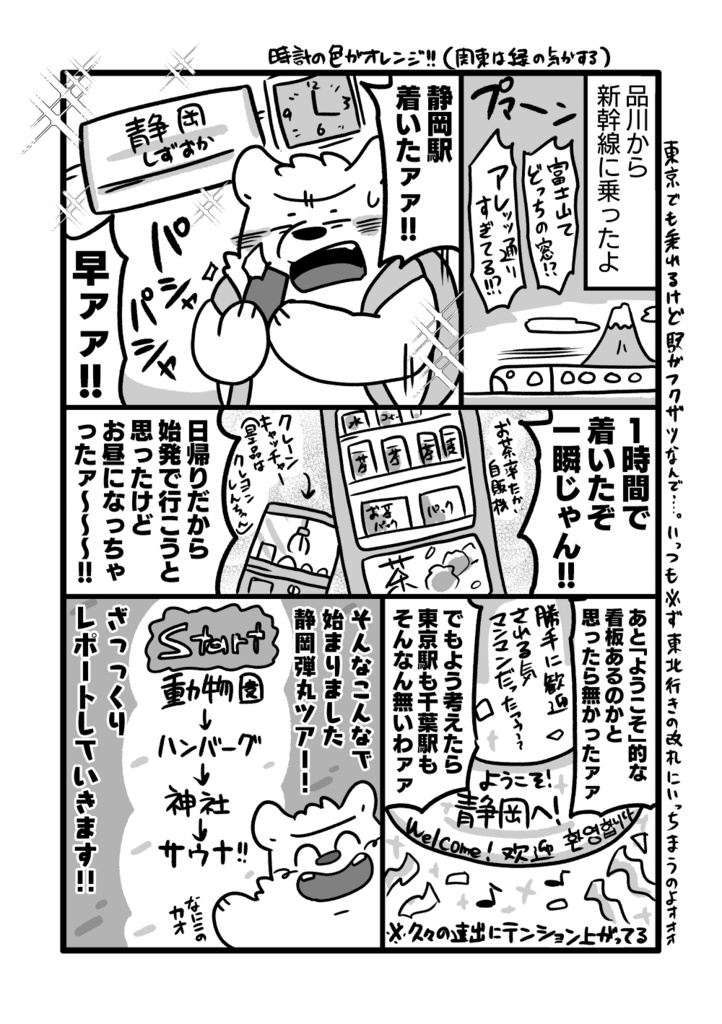 時計の色がオレンジ!!(関東は緑の気がする)
東京でも乗れるけど駅がフクザツなんで…。いっつも必ず東北行きの改札にいっちまうのよオオオ
品川から
新幹線に乗ったよ
プァーン
富士山て
どっちの窓!?
アレッッ通り
すぎてる!!?
静岡駅
着いたァァ!!
静岡
しずおか
12
3
6
9
パ
パシャ
シャ
早ァァ!!
1時間で
着いたぞ
一瞬じゃん!!
お茶率たかい
自販機
水
茶
お茶
パック
パック
茶
クレーン
キャッチャー
(景品は
クレヨン
しんちゃん)
日帰りだから
始発で行こうと
思ったけど
お昼になっちゃ
ったァ〜〜〜!!
あと「ようこそ」的な
看板あるのかと
思ったら無かったァァ
勝手に歓迎
される気
マンマンだったァァ??
でもよう考えたら
東京駅も千葉駅も
そんなん無いわァァ
ようこそ!
静岡へ!
Welcome! 欢迎 환영합니다
※久々の遠出にテンション上がってる
そんなこんなで
始まりました
静岡弾丸ツアー!!
Start
動物園
↓
ハンバーグ
↓
神社
↓
サウナ!!
ざっっくり
レポートしていきます!!
なにこの
カオ